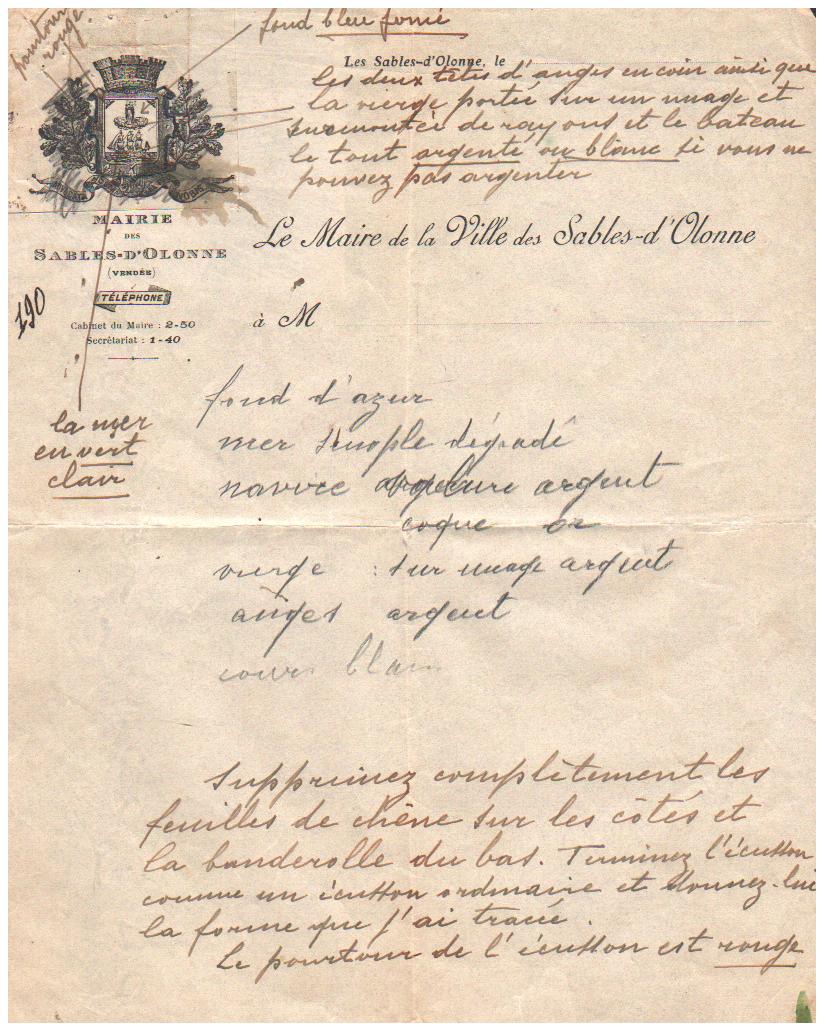 fond bleu foncé
pourtour
rouge
Les Sables-d'Olonne, le
les deux têtes d'anges en coin ainsi que
la vierge portée sur un nuage et
surmontée de rayons et le bateau
le tout argenté ou blanc si vous ne
pouvez pas argenter
MAIRIE
DES
SABLES-D'OLONNE
(VENDÉE)
TÉLÉPHONE
Cabinet du Maire : 2-50
Secrétariat : 1-40
190
Le Maire de la Ville des Sables-d'Olonne
à M
la mer
en vert
clair
fond d'azur
mer sinople dégradé
navire voilure argent
coque or
vierge : sur nuage argent
anges argent
Supprimez complètement les
feuilles de chêne sur les côtés et
la banderolle du bas. Terminez l'écusson
comme un écusson ordinaire et donnez-lui
la forme que j'ai tracée.
Le pourtour de l'écusson est rouge